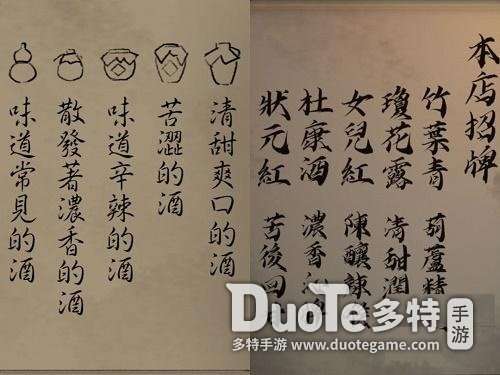 清甜爽口的酒
苦澀的酒
味道辛辣的酒
散發著濃香的酒
味道常見的酒
本店招牌
竹葉青 葫蘆精
瓊花露 清甜潤
女兒紅 陳釀辣
杜康酒 濃香
狀元紅 苦後回
DuoTe多特
手游
多特手游 www.duotegame.com